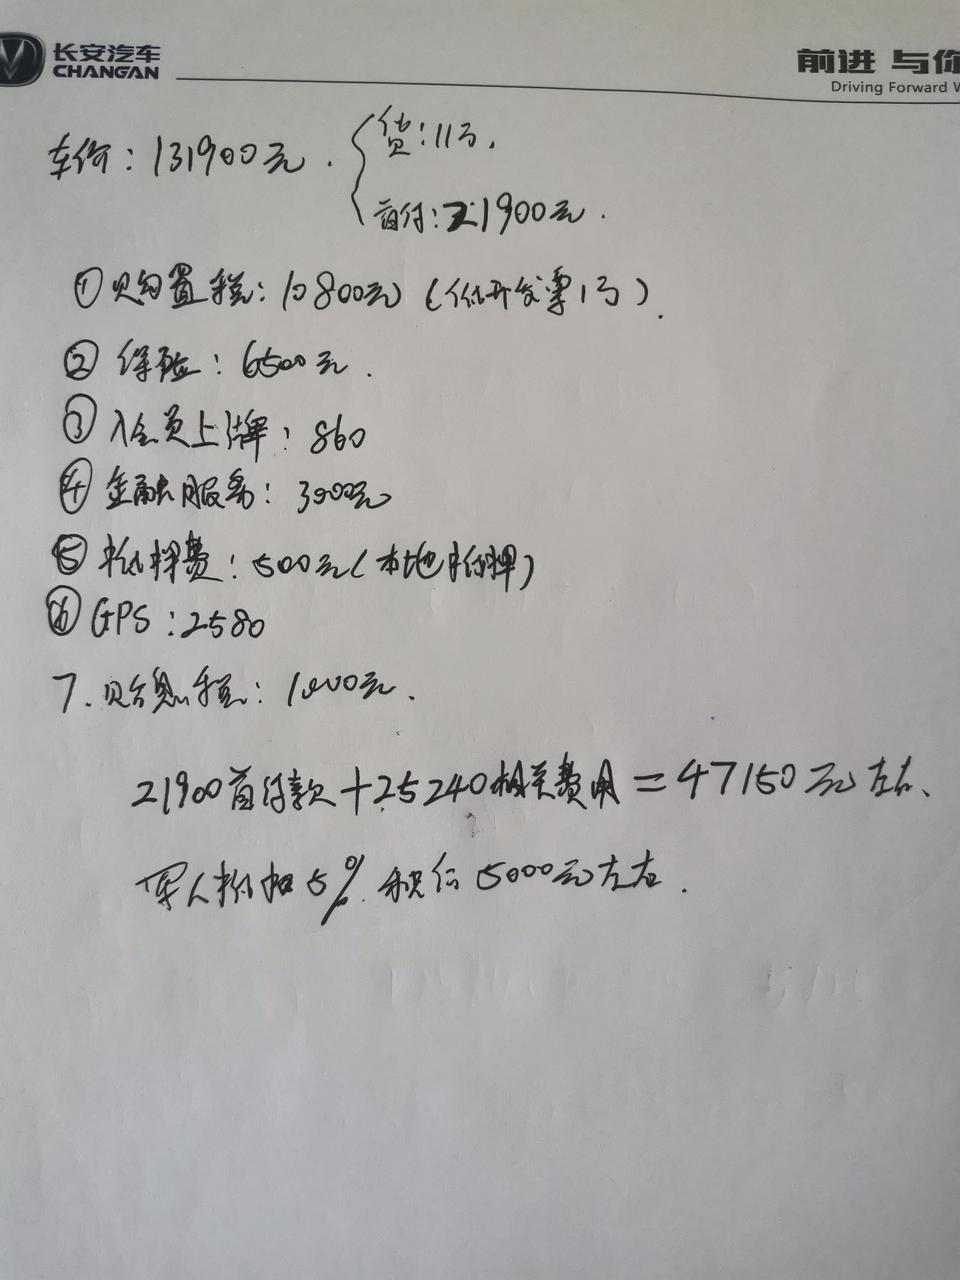 长安汽车
CHANGAN
前进 与你
Driving Forward W
车价：131900元．
贷：11万．
首付：21900元．
①购置税：10800元（低开发票1万）．
②保险：6500元．
③入会员上牌：860
④金融服务：3000元
⑤机押费：500元（本地
⑥GPS：2580
7．贴息税：1000元．
21900首付款＋25240相关费用＝47150元左右、
军人 5%． 5000元左右．